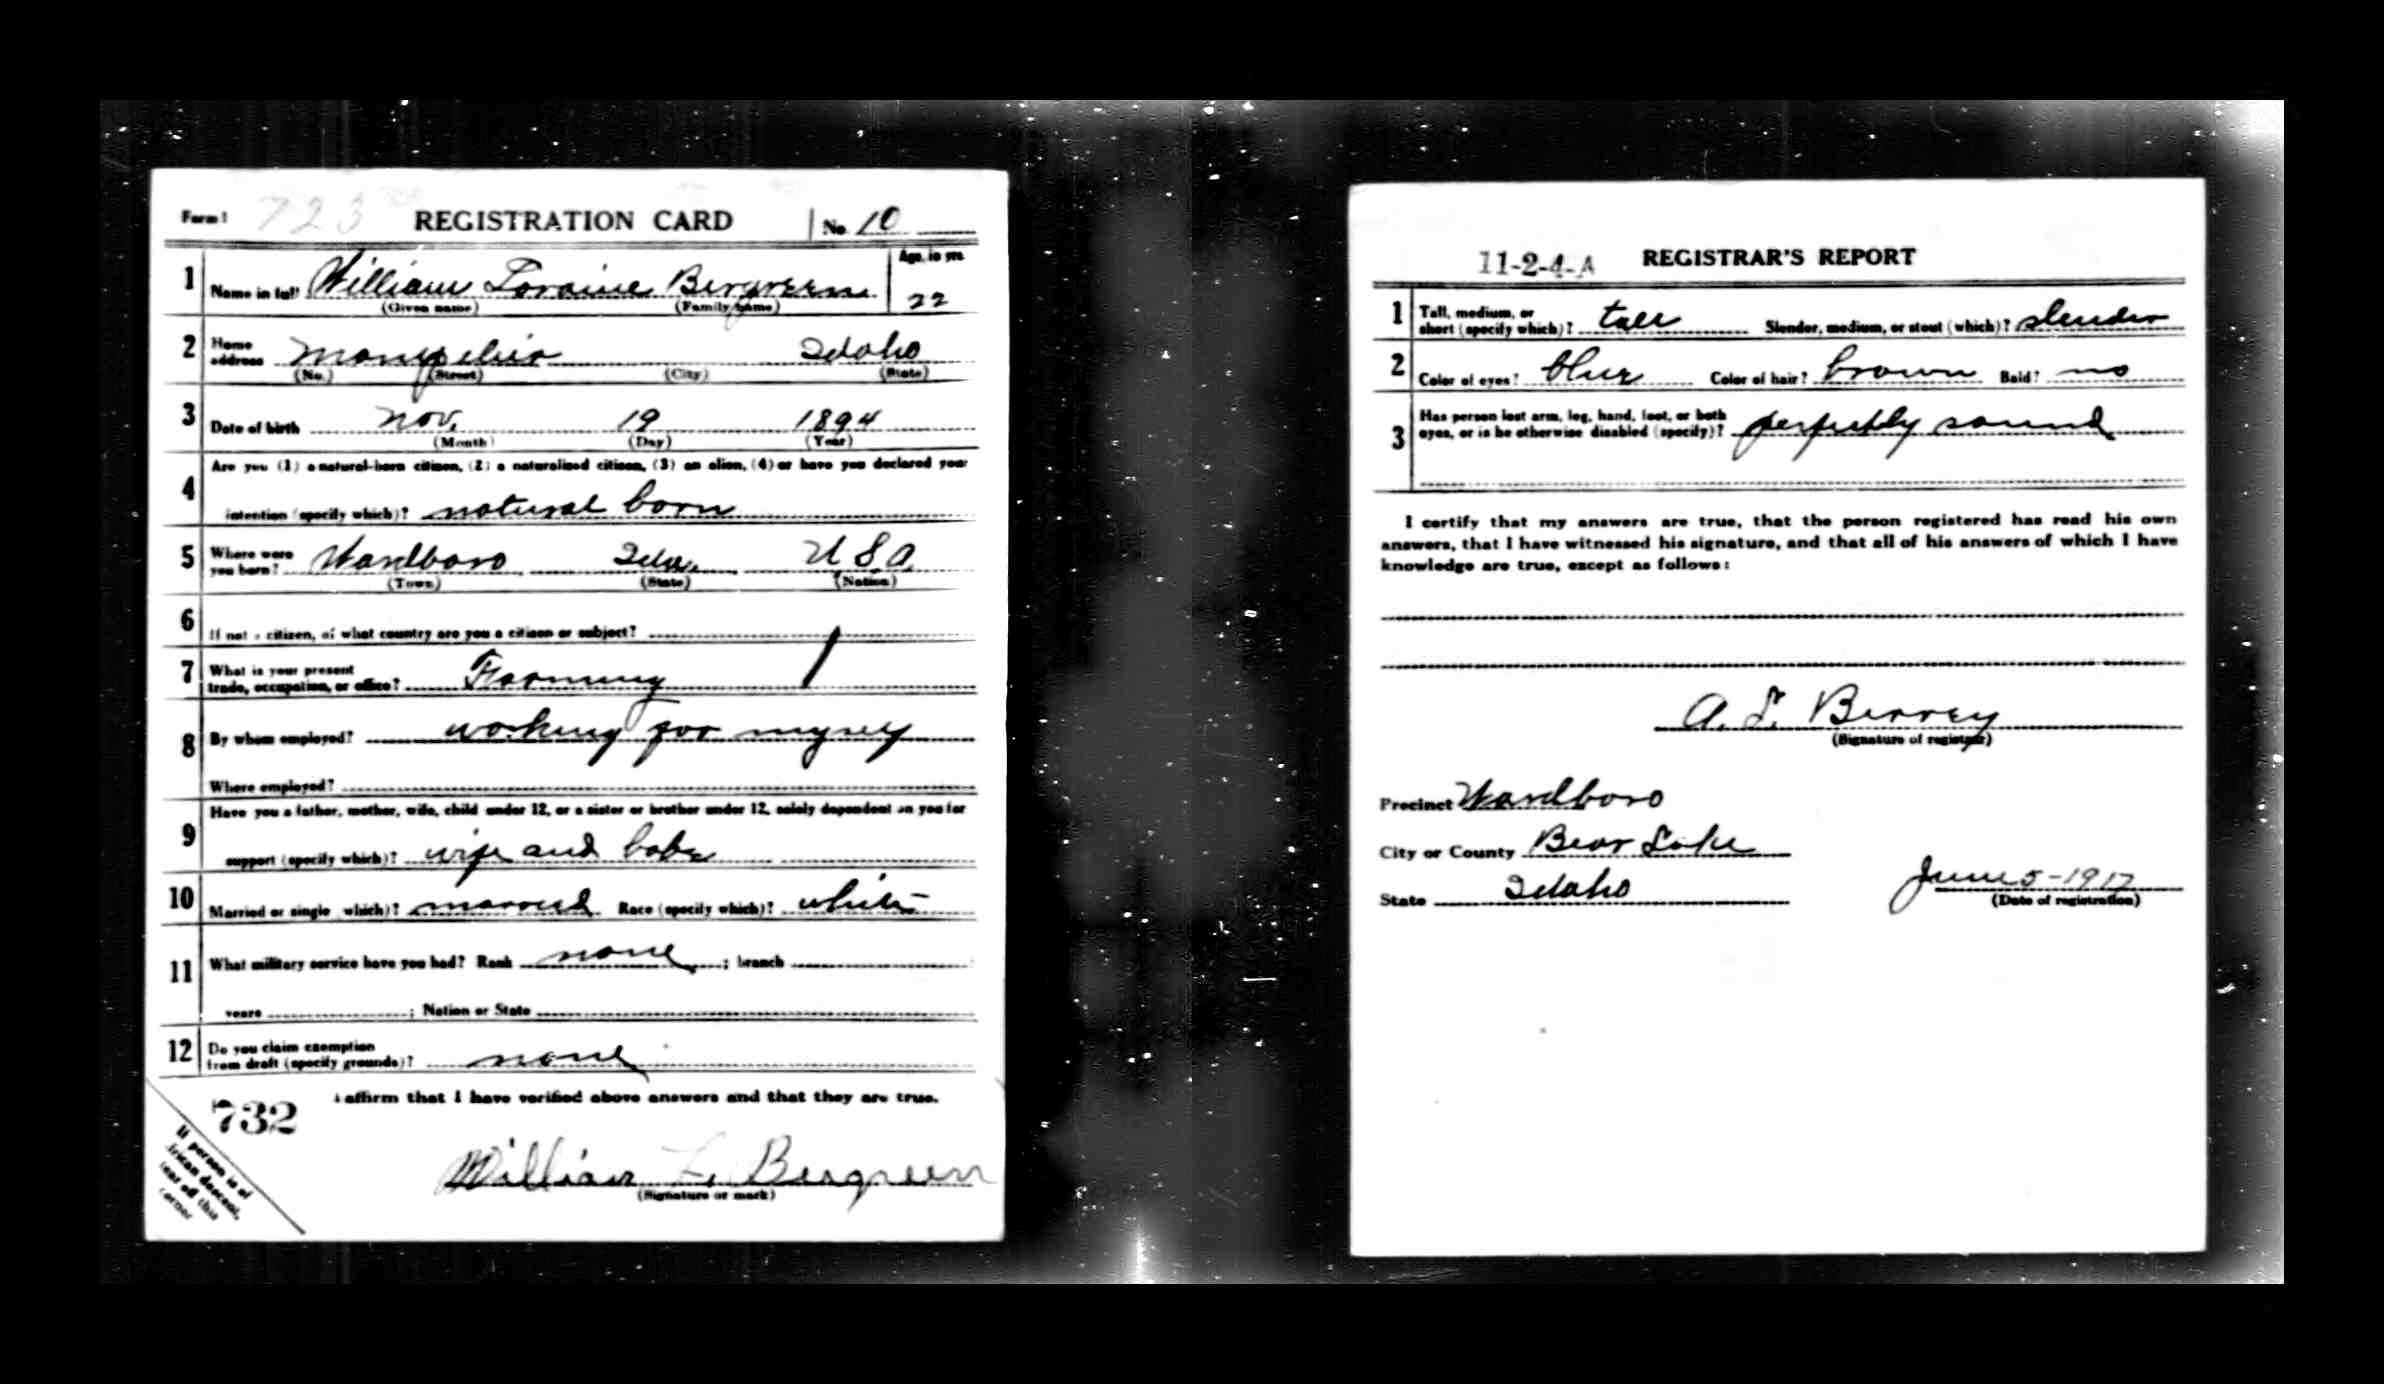 Form 1 723 REGISTRATION CARD No. 10
1 Name in full William Loraine Bergreen Age, in yrs. 22
(Given name) (Family name)
2 Home address Montpelier Idaho
(No.) (Street) (City) (State)
3 Date of birth Nov. 19 1894
(Month) (Day) (Year)
Are you (1) a natural-born citizen, (2) a naturalized citizen, (3) an alien, (4) or have you declared your
4 intention (specify which)? natural born
5 Where were you born? Wardboro Ida. U S A
(Town) (State) (Nation)
6 If not a citizen, of what country are you a citizen or subject?
7 What is your present trade, occupation, or office? Farming
8 By whom employed? working for myself
Where employed?
Have you a father, mother, wife, child under 12, or a sister or brother under 12, solely dependent on you for
9 support (specify which)? wife and babe
10 Married or single (which)? married Race (specify which)? white
11 What military service have you had? Rank none ; branch
years ; Nation or State
12 Do you claim exemption from draft (specify grounds)? none
I affirm that I have verified above answers and that they are true.
732
William L. Bergreen
(Signature or mark)
If person is of
African descent,
tear off this
corner
11-2-4-A REGISTRAR'S REPORT
1 Tall, medium, or short (specify which)? tall Slender, medium, or stout (which)? slender
2 Color of eyes? blue Color of hair? brown Bald? no
3 Has person lost arm, leg, hand, foot, or both eyes, or is he otherwise disabled (specify)? perfectly sound
I certify that my answers are true, that the person registered has read his own
answers, that I have witnessed his signature, and that all of his answers of which I have
knowledge are true, except as follows:
A. L. Berrey
(Signature of registrar)
Precinct Wardboro
City or County Bear Lake
State Idaho June 5-1917
(Date of registration)